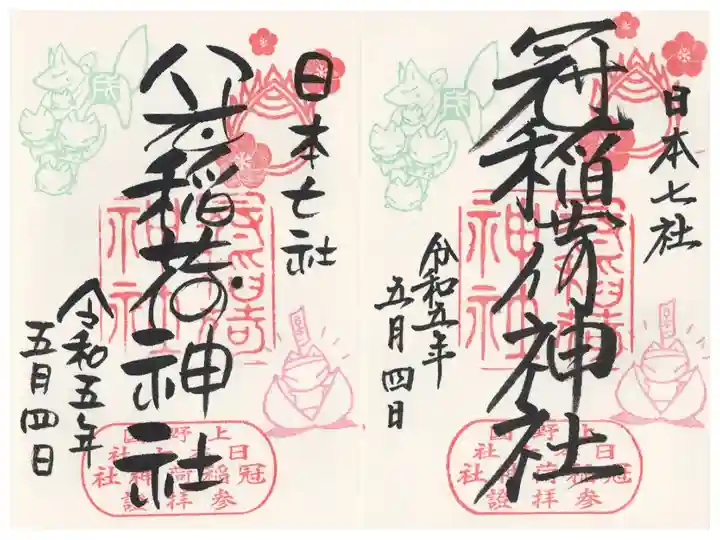 日本七社
稲荷神社
令和五年
五月四日
上野国
日本七社
冠稲荷神社
参拝證
日本七社
冠稲荷神社
令和五年
五月四日
上野国
日本七社
冠稲荷神社
参拝證